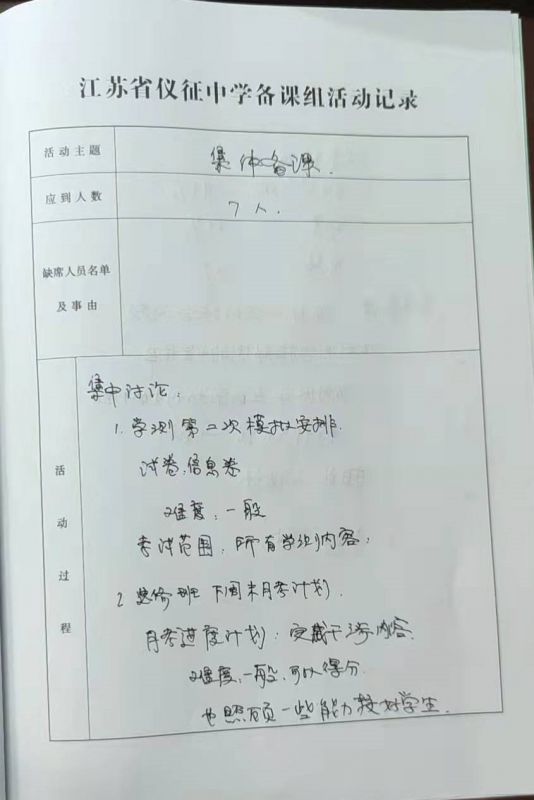 江苏省仪征中学备课组活动记录
活动主题
集体备课.
应到人数
7人.
缺席人员名单
及事由
活动过程
集中讨论:
1. 学测第二次模拟安排.
试卷:信息卷
难度:一般
考试范围:所有学测内容;
2 选修班 下周末月考计划.
月考进度计划:
内容.
难度:一般、可以得分.
也照顾一些能力较好学生.